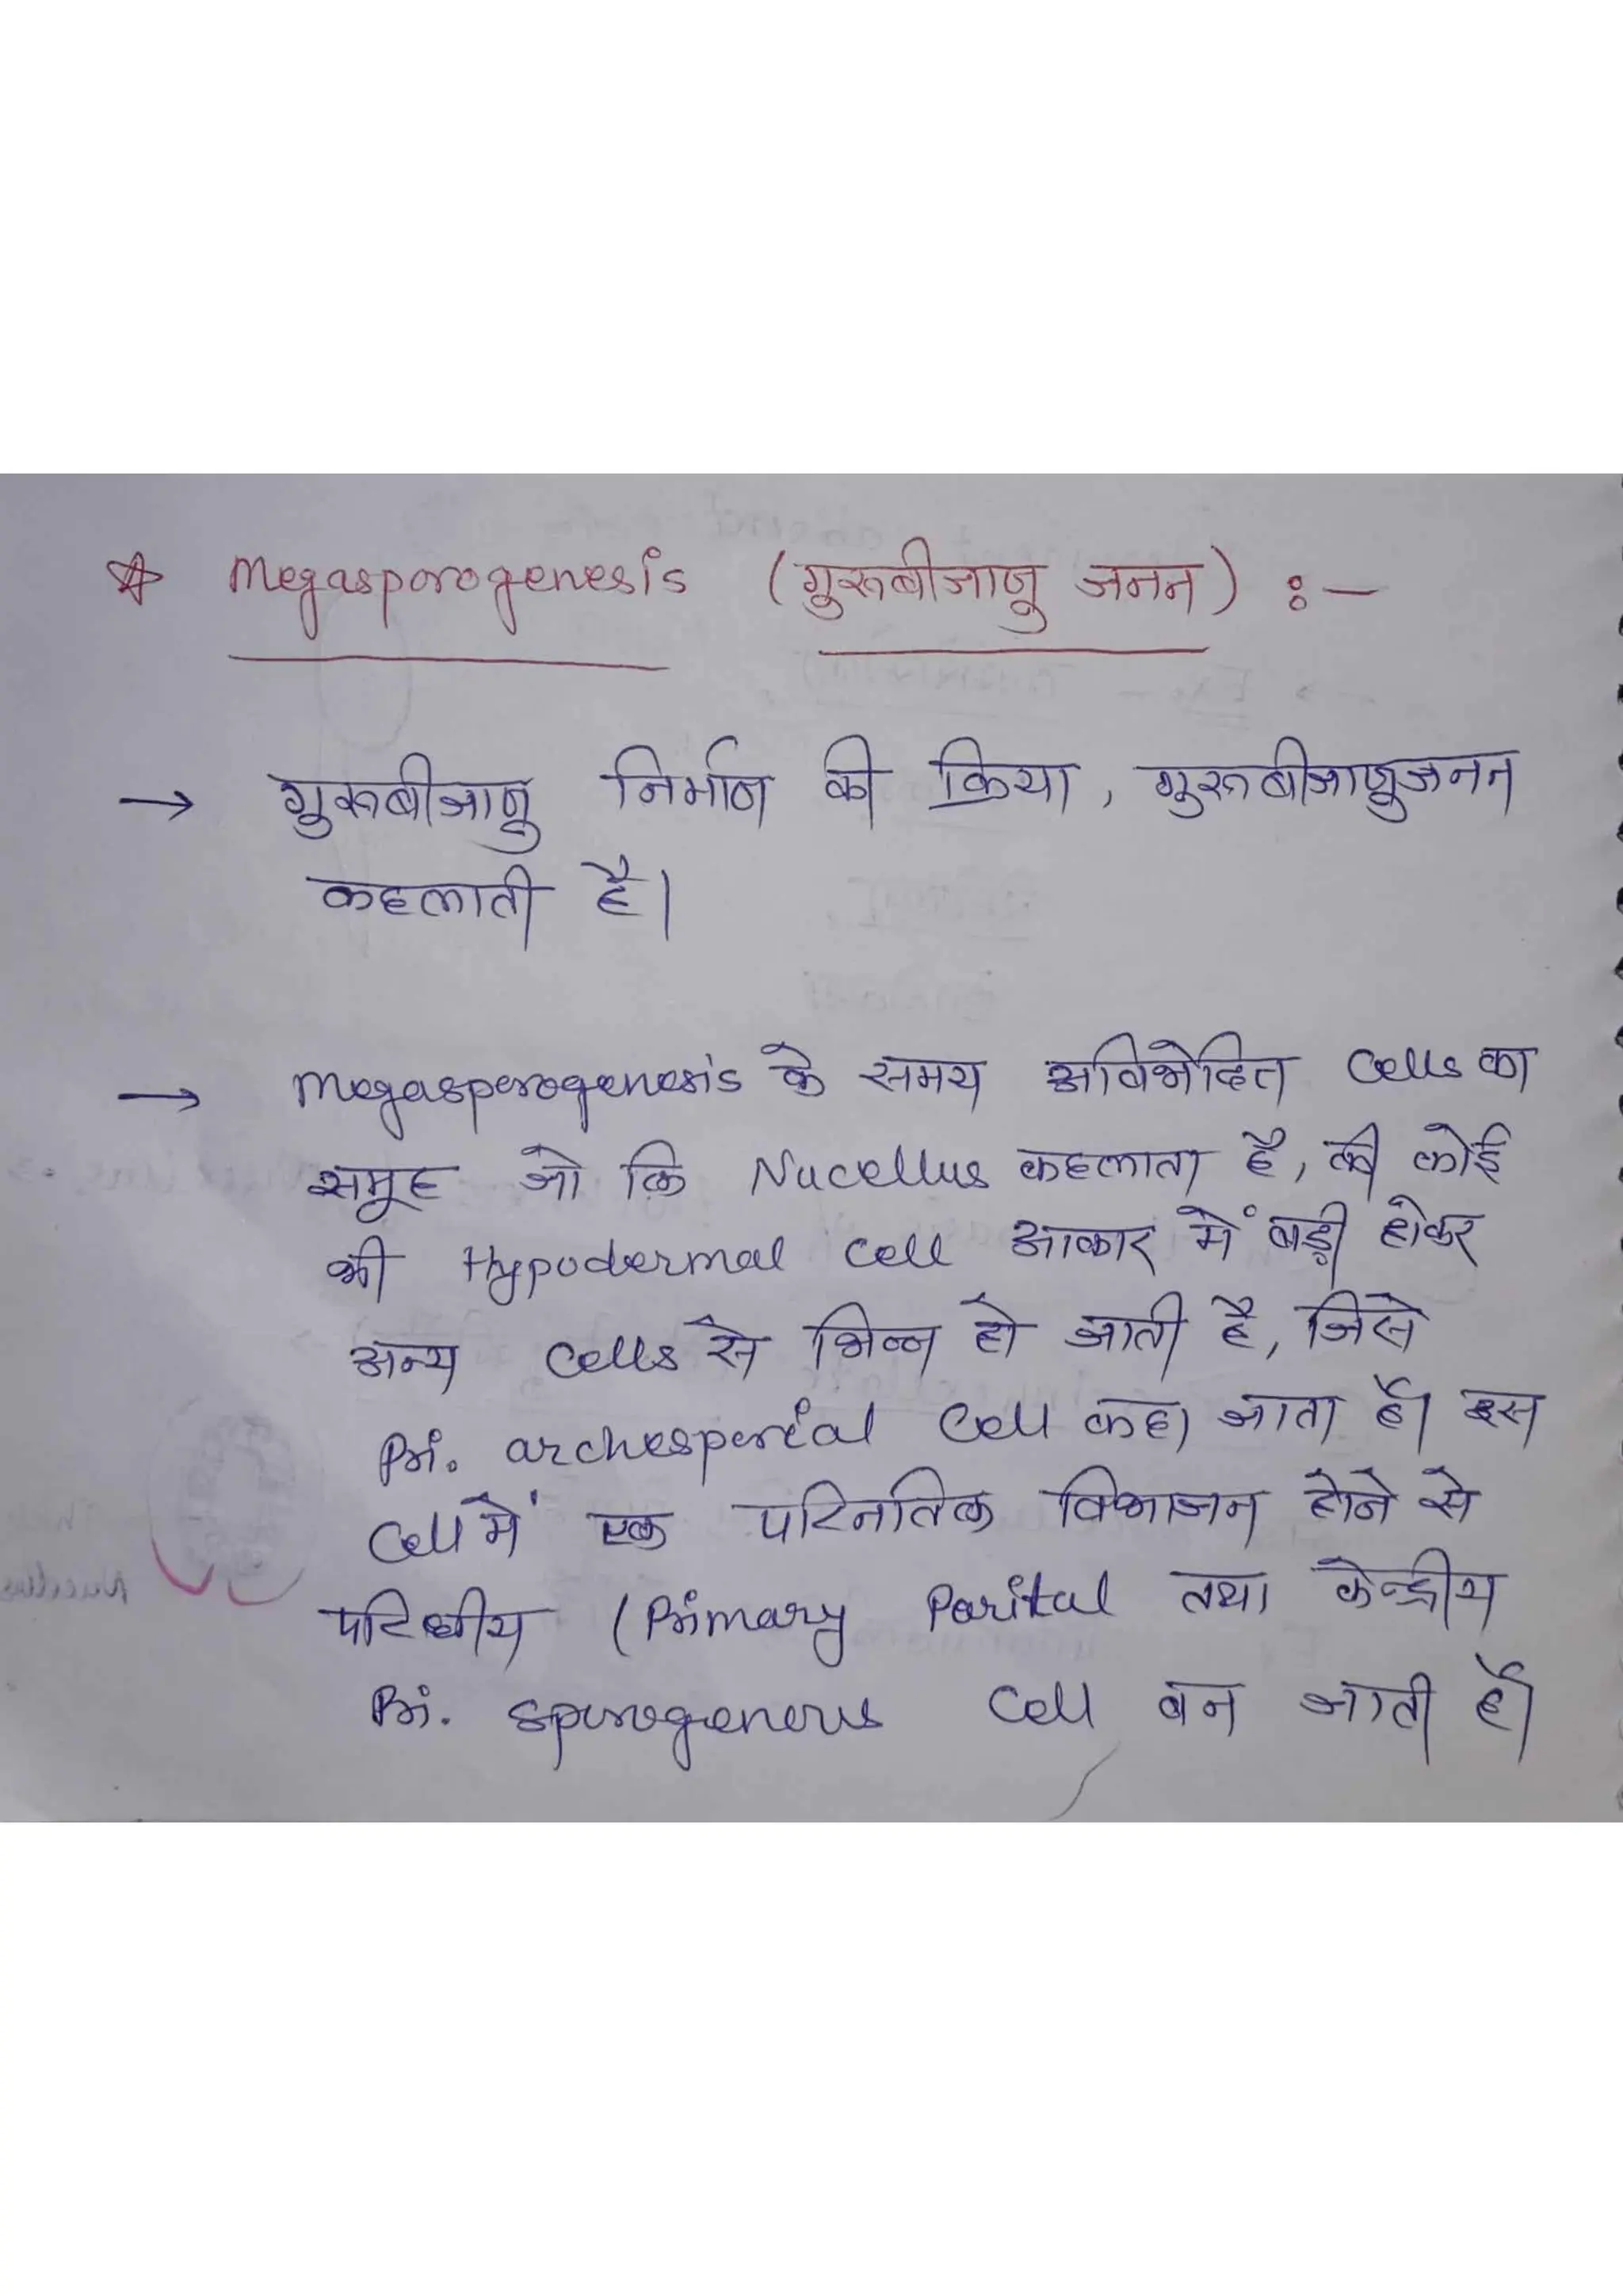 ☆ Megasporogenesis (गुरूबीजाणु जनन) :-
→ गुरूबीजाणु निर्माण की क्रिया, गुरूबीजाणुजनन
कहलाती है।
→ Megasporogenesis के समय अविभेदित Cells का
समूह जो कि Nucellus कहलाता है, की कोई
भी Hypodermal Cell आकार में बड़ी होकर
अन्य Cells से भिन्न हो जाती है, जिसे
Pri. archesporial Cell कहा जाता है। इस
Cell में एक परिनतिक विभाजन होने से
परिधीय (Primary Parital तथा केन्द्रीय
Pri. sporogenous Cell बन जाती है।